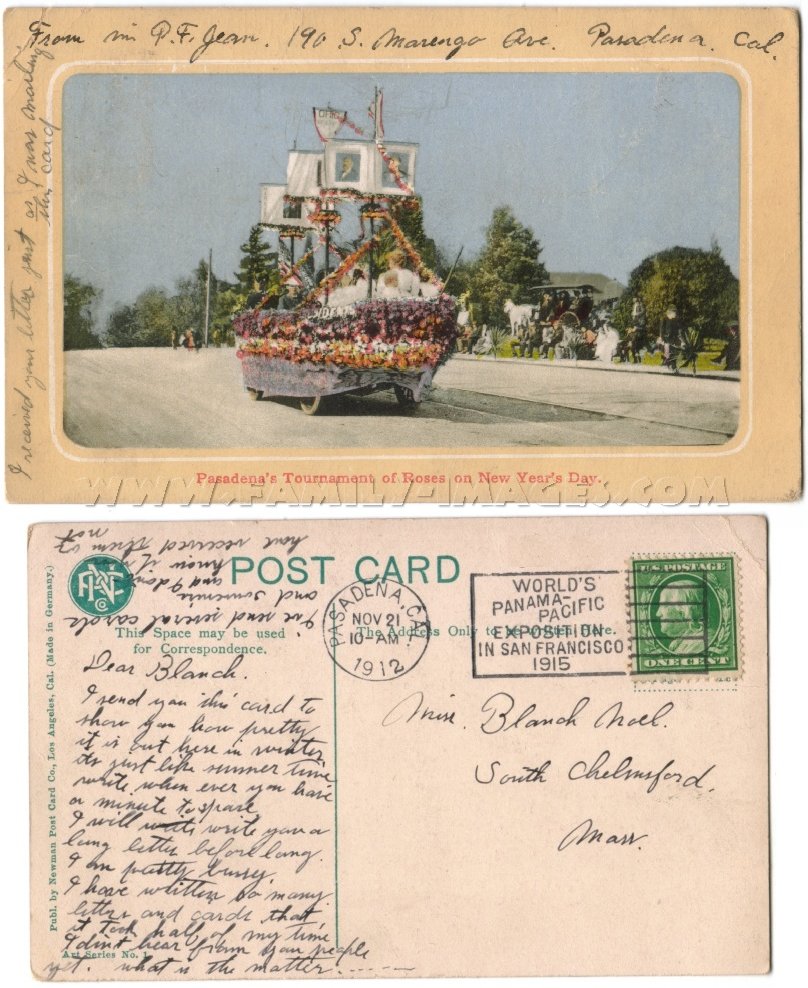 From P.F. Jean. 190 S. Marengo Ave. Pasadena. Cal.
I received your letter just as I was mailing
this card
OHIO
Pasadena's Tournament of Roses on New Year's Day.
WWW.FAMILY-IMAGES.COM
POST CARD
NPC
Co
This Space may be used
for Correspondence.
The Address Only to be written Here.
PASADENA, CAL.
NOV 21
10-AM
1912
WORLD'S
PANAMA-
PACIFIC
EXPOSITION
IN SAN FRANCISCO
1915
U.S. POSTAGE
ONE CENT
I've send several cards
and souvenir
and I dont
know if you
have received them or
not
Dear Blanch.
I send you this card to
show you how pretty
it is out here in winter
its just like summer time
write when ever you have
a minute to spare
I will write you a
long letter before long.
I am pretty bussy.
I have written so many
letters and cards that
it took half of my time
I din't hear from your people
yet. what is the matter.......
Miss. Blanch Noel.
South Chelmsford.
Mass.
Publ. by Newman Post Card Co., Los Angeles, Cal. (Made in Germany.)
Art Series No. 1